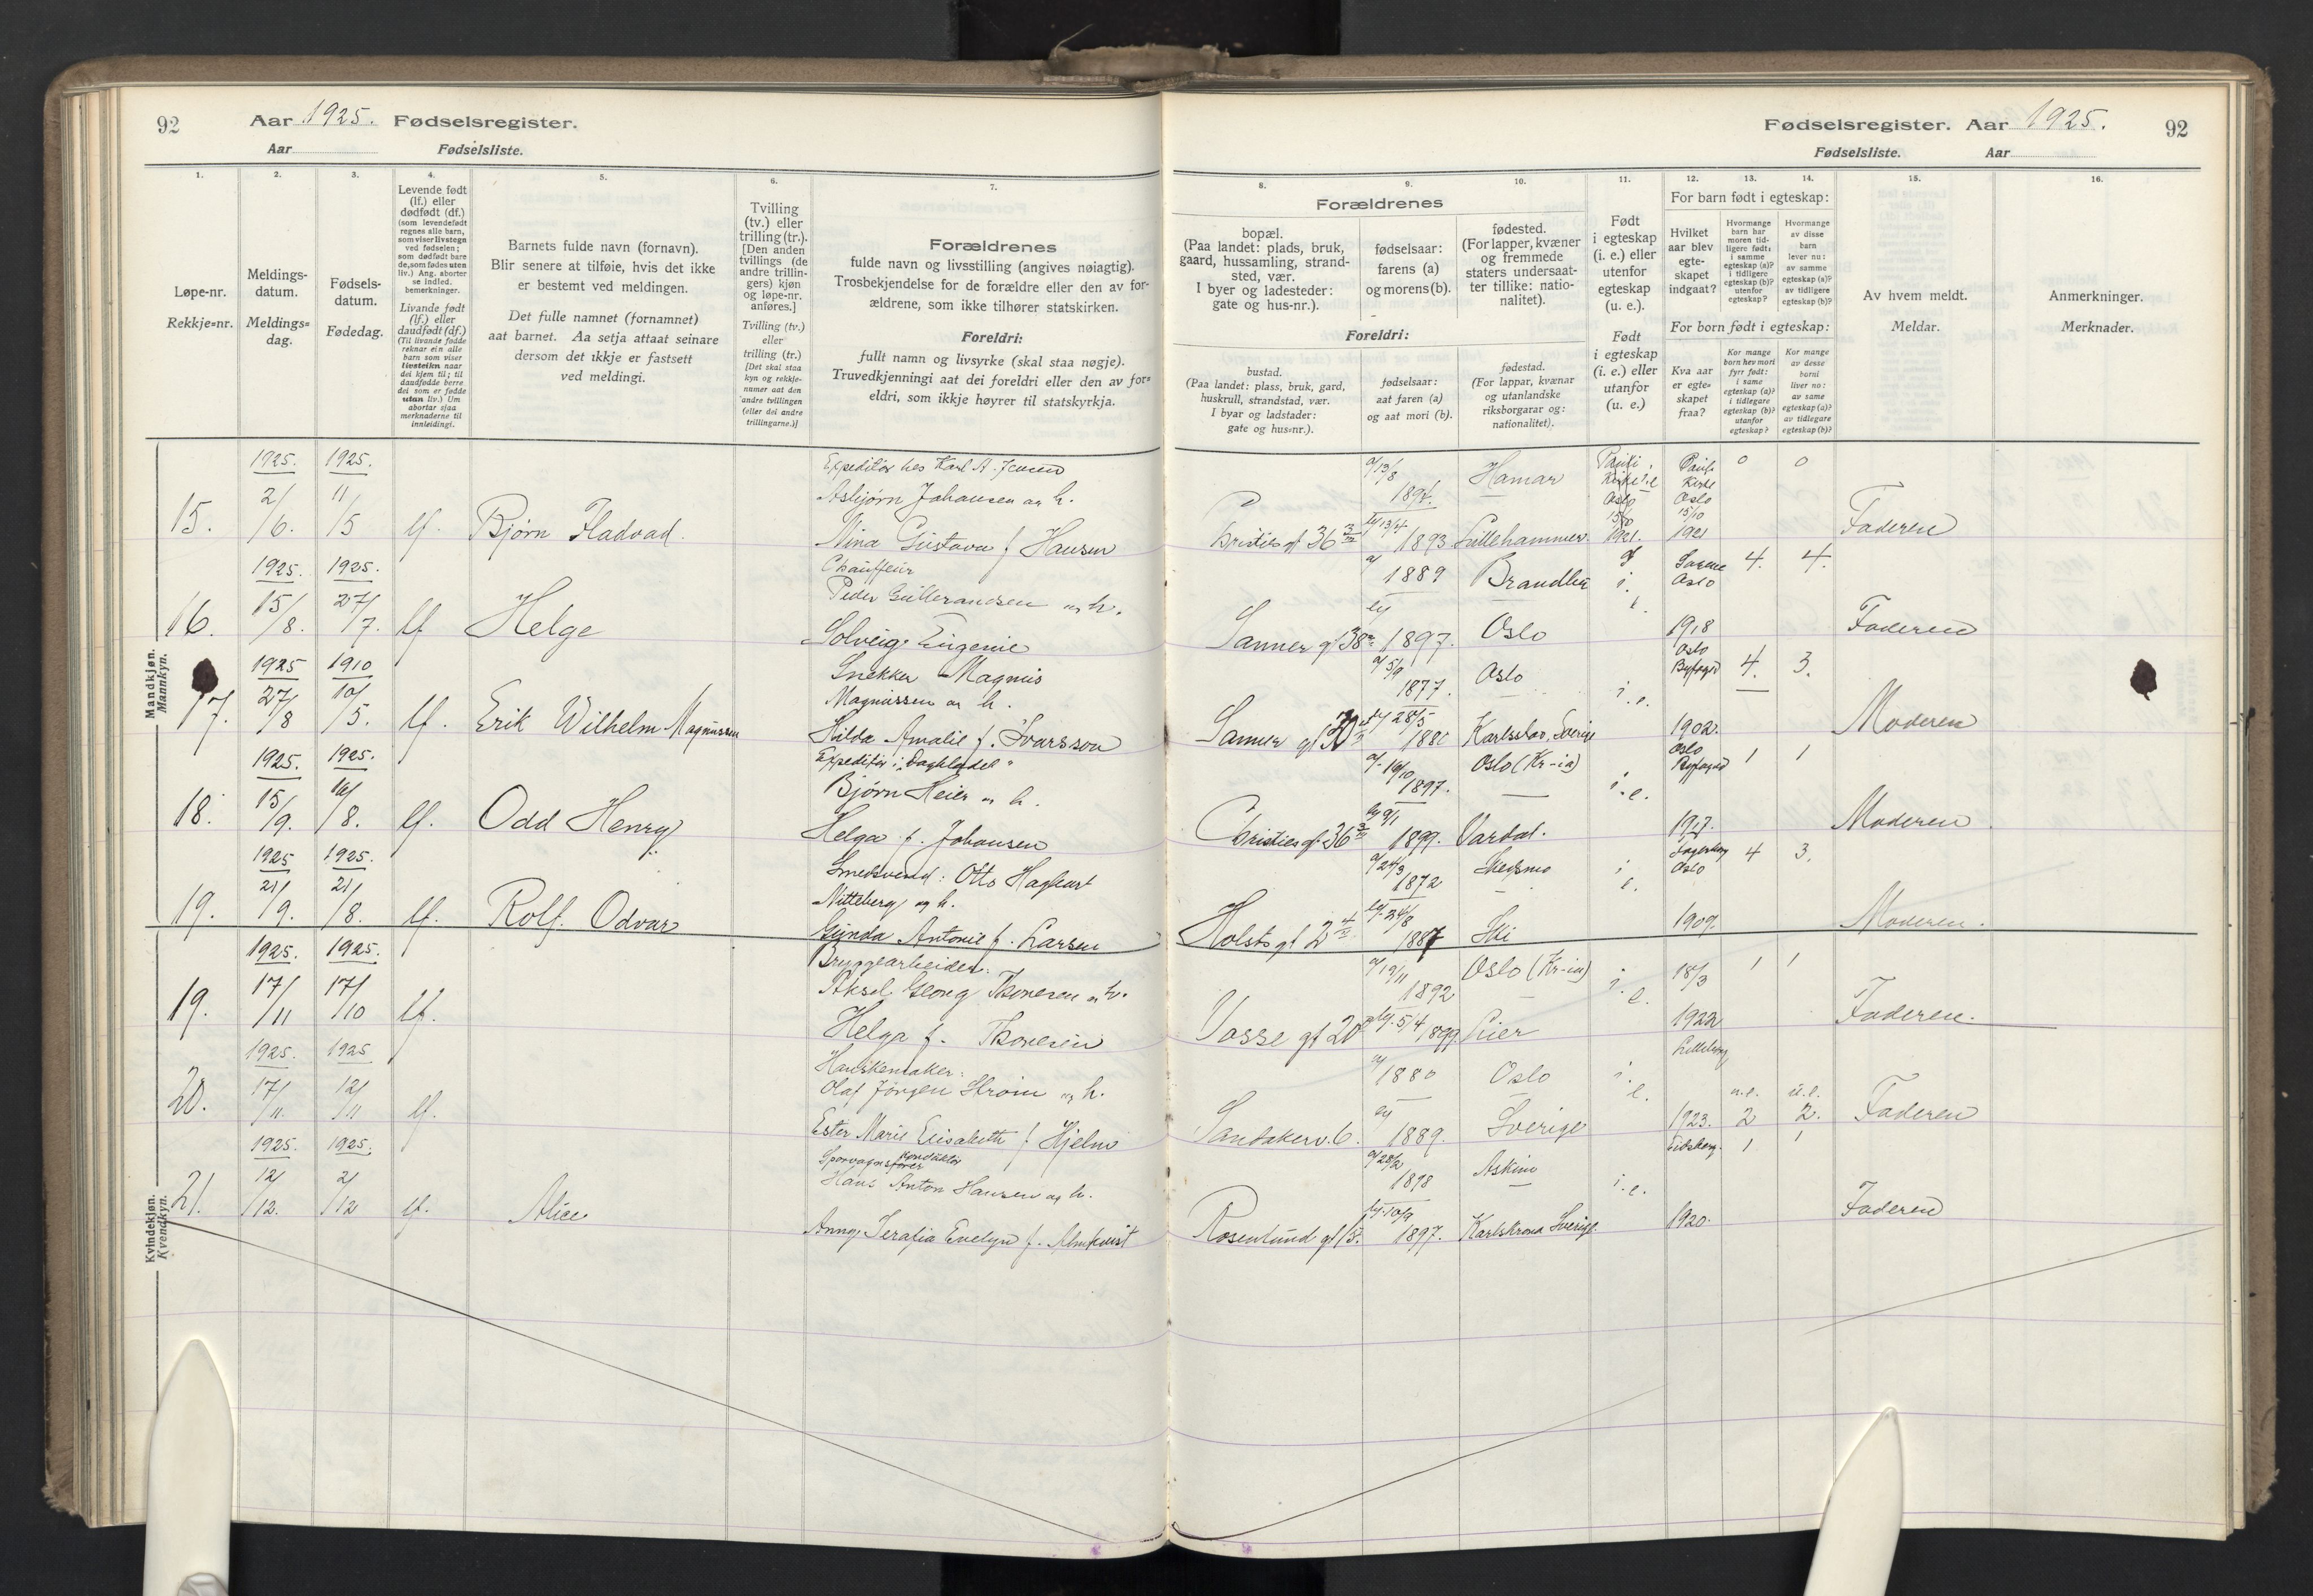 92
Aar 1925. Fødselsregister.
Aar Fødselsliste.
Fødselsregister. Aar 1925.
92
Fødselsliste. Aar
1. 2. 3. 4. 5. 6. 7.
Løpe-nr.
Rekkje=nr.
Meldings-
datum.
Meldings=
dag.
Fødsels-
datum.
Fødedag.
Levende født
(lf.) eller
dødfødt (df.)
(som levendefødt
regnes alle barn,
som viser livstegn
ved fødselen;
som dødfødt bare
de, som fødes uten
liv.) Ang. aborter
se indled.
bemerkninger.
Livande født
(lf.) eller
daudfødt (df.)
(Til livande fødde
reknar ein alle
barn som viser
livsteikn naar
dei kjem til; til
daudfødde berre
dei som er fødde
utan liv.) Um
abortar sjaa
merknaderne til
innleidingi.
Barnets fulde navn (fornavn).
Blir senere at tilføie, hvis det ikke
er bestemt ved meldingen.
Det fulle namnet (fornamnet)
aat barnet. Aa setja attaat seinare
dersom det ikkje er fastsett
ved meldingi.
Tvilling
(tv.) eller
trilling (tr.).
[Den anden
tvillings (de
andre trillin-
gers) kjøn
og løpe-nr.
anføres.]
Tvilling (tv.)
eller
trilling (tr.)
[Det skal staa
kyn og rekkje-
numer aat den
andre tvillingen
(eller dei andre
trillingarne.)]
Forældrenes
fulde navn og livsstilling (angives nøiagtig).
Trosbekjendelse for de forældre eller den av for-
ældrene, som ikke tilhører statskirken.
Foreldri:
fullt namn og livsyrke (skal staa nøgje).
Truvedkjenningi aat dei foreldri eller den av for=
eldri, som ikkje høyrer til statskyrkja.
8. 9. 10. 11. 12. 13. 14. 15. 16.
Forældrenes
bopæl.
(Paa landet: plads, bruk,
gaard, hussamling, strand-
sted, vær.
I byer og ladesteder:
gate og hus-nr.).
fødselsaar:
farens (a)
og morens (b).
fødested.
(For lapper, kvæner
og fremmede
staters undersaat-
ter tillike: natio-
nalitet).
Foreldri:
bustad.
(Paa landet: plass, bruk, gard,
huskrull, strandstad, vær.
I byar og ladstader:
gate og hus=nr.).
fødselsaar:
aat faren (a)
og aat mori (b).
fødestad.
(For lappar, kvænar
og utanlandske
riksborgarar og:
nationalitet).
Født
i egteskap
(i. e.) eller
utenfor
egteskap
(u. e.).
Født
i egteskap
(i. e.) eller
utanfor
(u. e.)
For barn født i egteskap:
Hvilket
aar blev
egte-
skapet
indgaat?
Hvormange
barn har
moren tid-
ligere født:
i samme
egteskap (a)?
i tidligere
egteskap (b)?
utenfor
egteskap?
Hvormange
av disse
barn
lever nu:
av samme
egteskap (a)?
av tidligere
egteskap (b)?
For born født i egteskap:
Kva aar
er egte=
skapet
fraa?
Kor mange
born hev mori
fyrr født:
i same
egteskap (a)?
i tidlegare
egteskap (b)?
utanfor
egteskap?
Kor mange
av desse
borni
liver no:
av same
egteskap (a)?
av tidlegare
egteskap (b)?
Av hvem meldt.
Meldar.
Anmerkninger.
Merknader.
Mandkjøn.
Mannkyn.
15. 1925. 2/6. 1925. 11/5 lf. Bjørn Fladvad.
Expeditør hos Karl A. Jensen
Asbjørn Johansen og h.
Nina Gustava f. Hansen
Christies gt 36 3/IV a/ 13/8 1894. Hamar
b/ 13/4 1893 Lillehammer.
Pauli Kirke Oslo 15/10 1921. i. e.
Pauli Kirke Oslo 15/10 1921 0 0 Faderen
16. 1925. 15/8. 1925. 27/7. lf Helge
Chauffeur
Peder Gulbrandsen og h.
Solveig Eugenie
Sanner gt 38 a/ 1889 Brandbu
b/ 1897. Oslo i. e. Sagene Oslo 1918 4. 4. Faderen
17. 1925 27/8 1910 10/5. lf. Erik Wilhelm Magnussen
Snekker Magnus
Magnussen og h.
Hilda Amalie f. Ivarsson
Sanner gt 30 a/ 5/9 1877. Oslo
b/ 28/5 1880 Karlstad. Sverige i. e. Oslo Byfoged 1902. 4. 3. Moderen
18. 1925. 15/9. 1925. 16/8. lf. Odd Henry
Expeditør i "Dagbladet"
Bjørn Heier og h.
Helga f. Johansen
Christies gt. 36 3/IV a/ 19/10 1897. Oslo (Kr-ia)
b/ 9/1 1899. Vardal. i. e. Oslo Byfoged 1917. 1 1 Moderen
19. 1925 21/9. 1925. 21/8. lf. Rolf Odvar
Smedsvend: Otto Hagbart
Nitteberg og h.
Gunda Antonie f. Larsen
Holsts gt 2 4/IV a/ 24/3 1872 Skedsmo
b/ 24/8 1887 Ski i. e. Fagerborg Oslo 1909. 4 3. Moderen.
Kvindekjøn.
Kvendkyn.
19. 1925. 17/11 1925. 17/10 lf.
Bryggearbeider:
Aksel Georg Thoresen og h.
Helga f. Thoresen
Vosse gt 20 a/ 19/11 1892 Oslo (Kr-ia)
b/ 5/4 1899 Lier i. e. 18/3 1922 1 1 Faderen.
20. 1925. 17/11. 1925 12/11 lf.
Hanskemaker:
Olaf Jørgen Strøm og h.
Ester Marie Elisabeth f. Hjelm
Sandakerv. 6. a/ 1880 Oslo
b/ 1889. Sverige i. e. Lilleborg 1923. u.e. 2 u.e. 2. Faderen
21. 1925. 12/12. 1925. 2/12 lf. Alice
Sporvognskonduktør
Hans Anton Hansen og h.
Anny Serafia Evelyn f. Almkvist
Rosenlund gt 15. a/ 28/2 1898 Askim
b/ 10/9 1897. Karlskrona Sverige i. e. Eidsberg. 1920. 1 1 Faderen